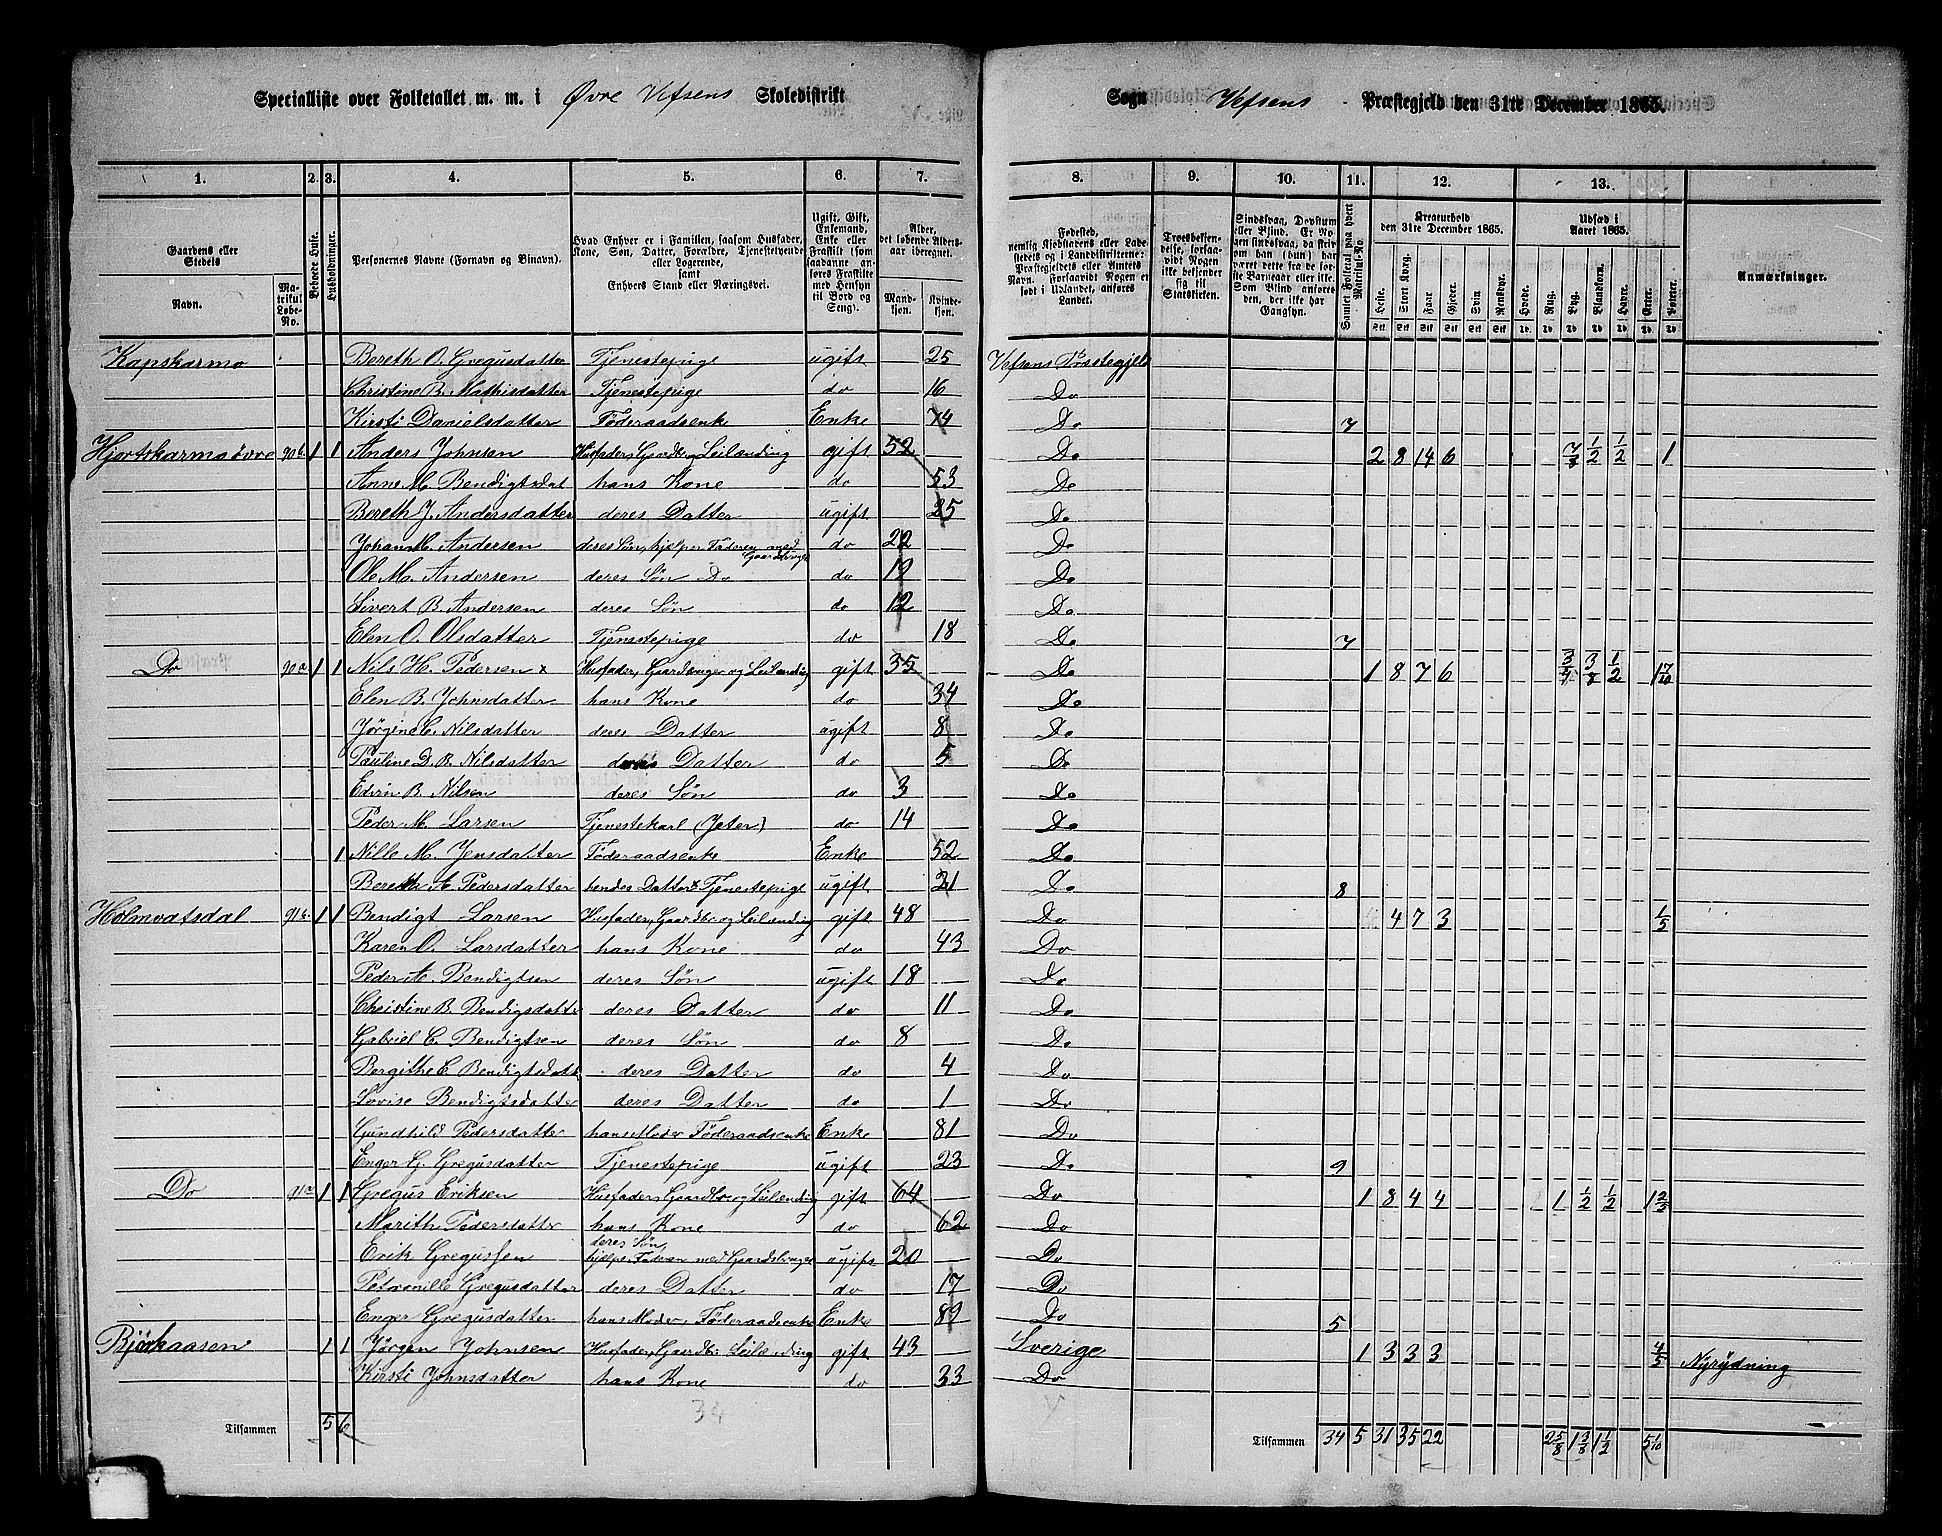 Specialliste over Folketallet m. m. i Øvre Vefsens Skoledistrikt Sogn Vefsens Præstegjeld den 31te December 1865.
1. 2. 3. 4. 5. 6. 7. 8. 9. 10. 11. 12. 13.
Gaardens eller Stedets Navn. Matrikul Løbe-No. Beboede Huse. Husholdninger. Personernes Navne (Fornavn og Tilnavn). Hvad Enhver er i Familien, saasom Husfader, Kone, Søn, Datter, Forældre, Tjenestetyende eller Logerende, samt Enhvers Stand eller Næringsvei. Ugift, Gift, Enkemand, Enke eller Fraskilt (som saadanne anføres Fraskilte med Hensyn til Bord og Seng). Alder, det løbende Aldersaar iberegnet. Mandkjøn. Kvindekjøn. Fødested, nemlig Kjøbstadens eller Ladestedets og i Landdistrikterne: Præstegjeldets eller Amtets Navn. Forsaavidt Nogen er født i Udlandet, anføres Landet. Troesbekjendelse, forsaavidt Nogen ikke bekjender sig til Statskirken. Samlet Folketal paa hvert Matrikul-No. Kreaturhold den 31te December 1865. Heste. Stort Kvæg. Faar. Gjeder. Svin. Rensdyr. Udsæd i Aaret 1865. Hvede. Rug. Byg. Blandkorn. Havre. Erter. Poteter. Anmærkninger.
Kapskarmo Bereth O. Gregusdatter Tjenestepige ugift 25 Vefsens Præstegjeld
Christine B. Mathisdatter Tjenestepige do 16 Do
Kirsti Danielsdatter Föderaadsenke Enke 74 Do 7
Hjortskarmo övre 90b 1 1 Anders Johnsen Husfader, Gaardbr og Leilænding gift 52 Do 2 8 14 6 7/8 1/2 1/2 1
Anne M. Bendigtsdat hans Kone do 53 Do
Bereth J. Andersdatter deres Datter ugift 25 Do
Johan C. Andersen deres Søn, hjelper Faderen med Gaardsbruget do 22 Do
Ole M. Andersen deres Søn Do do 19 Do
Sivert B. Andersen deres Søn do 12 Do
Elen O. Olsdatter Tjenestepige do 18 Do 7
Do 90a 1 1 Nils H. Pedersen x Husfader, Gaardbruger og Leilænding gift 35 Do 1 8 7 6 3/4 3/8 1/2 1 7/10
Elen B. Johnsdatter hans Kone do 34 Do
Jørgine C. Nilsdatter deres Datter ugift 8 Do
Pauline D. B. Nilsdatter deres Datter do 5 Do
Edvin B. Nilsen deres Søn do 3 Do
Peder M. Larsen Tjenestekarl (Jeter) do 14 Do
1 Nille M. Jensdatter Föderaadsenke Enke 52 Do
Bereth A. Pedersdatter hendes Datter x Tjenestepige ugift 21 Do 8
Holmvatsdal 91b 1 1 Bendigt Larsen Husfader, Gaardbr og Leilænding gift 48 Do 4 7 3 1/5
Karen O. Larsdatter hans Kone do 43 Do
Peder A. Bendigtsen deres Søn ugift 18 Do
Christine B. Bendigsdatter deres Datter do 11 Do
Gabriel C. Bendigtsen deres Søn do 8 Do
Bergithe C Bendigtsdatt deres Datter do 4 Do
Lovise Bendigtsdatter deres Datter do 1 Do
Gundhild Pedersdatter hans Moder Föderaadsenke Enke 81 Do
Enger G. Gregusdatter Tjenestepige ugift 23 Do 9
Do 91a 1 1 Gregus Eriksen Husfader, Gaardbr og Leilænding gift 64 Do 1 8 4 4 1 1/2 1/2 1 2/5
Marith Pedersdatter hans Kone do 62 Do
Erik Gregussen deres Søn hjelper Faderen med Gaardsbruget ugift 20 Do
Petronille Gregusdatter deres Datter do 17 Do
Enger Gregusdatter hans Moder, Föderaadsenke Enke 89 Do 5
Björkaasen 1 1 Jørgen Johnsen Husfader, Gaardbr. Leilænding gift 43 Sverige 1 3 3 3 4/5 Nyrydning
Kirsti Johnsdatter hans Kone do 33 Do
34
Tilsammen 5 6 Tilsammen 34 5 31 35 22 2 5/8 1 3/8 1 1/2 5 1/10